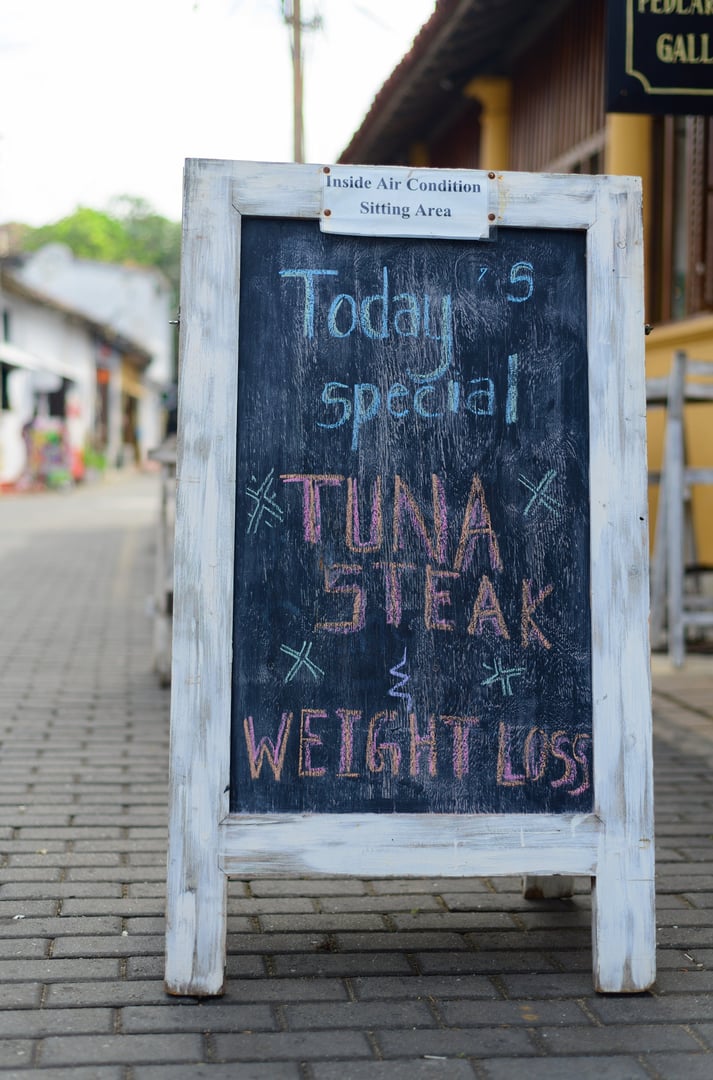 GALL
Inside Air Condition
Sitting Area
Today's
special
TUNA
STEAK
&
WEIGHT LOSS